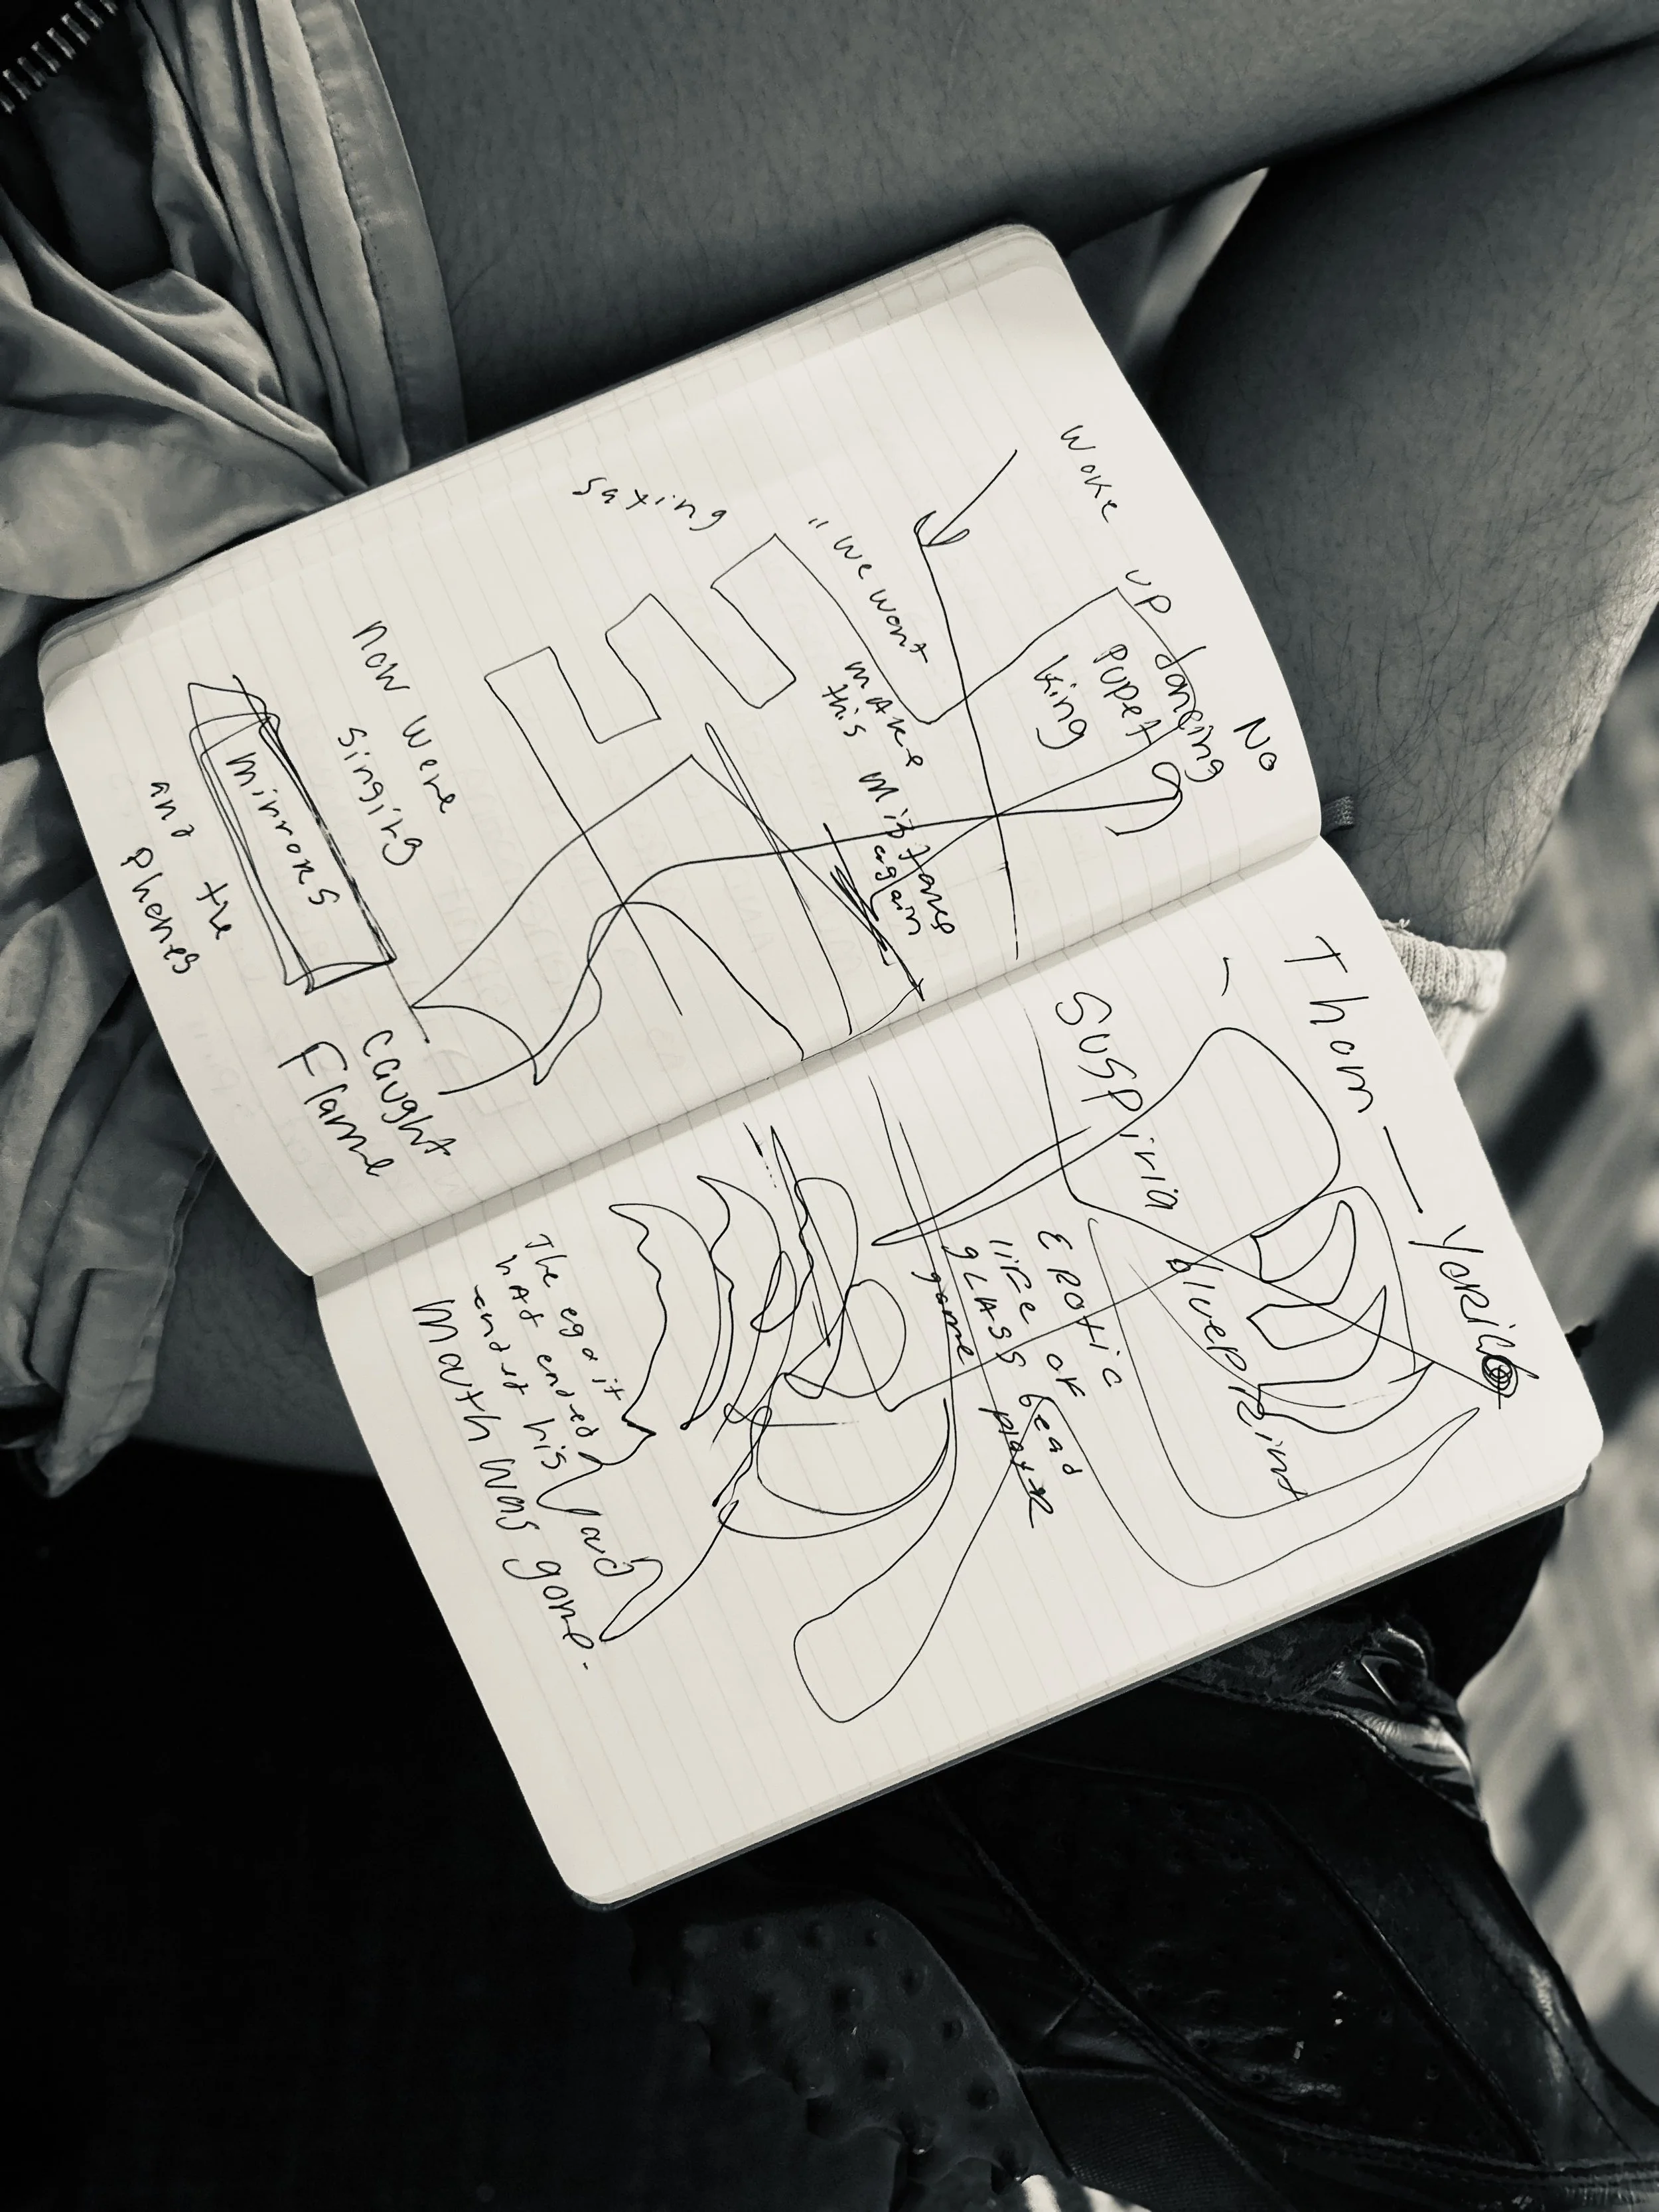 No
woke up dancing
pupet
king
"we wont
make
this
again
saying
now were
singing
mirrors
caught
Flame
and the
phones
Thom —
Suspiria
blueprint
EROtic
life OF
gLASS bead
game player
The ego it
had ended
his
mouth was gone.